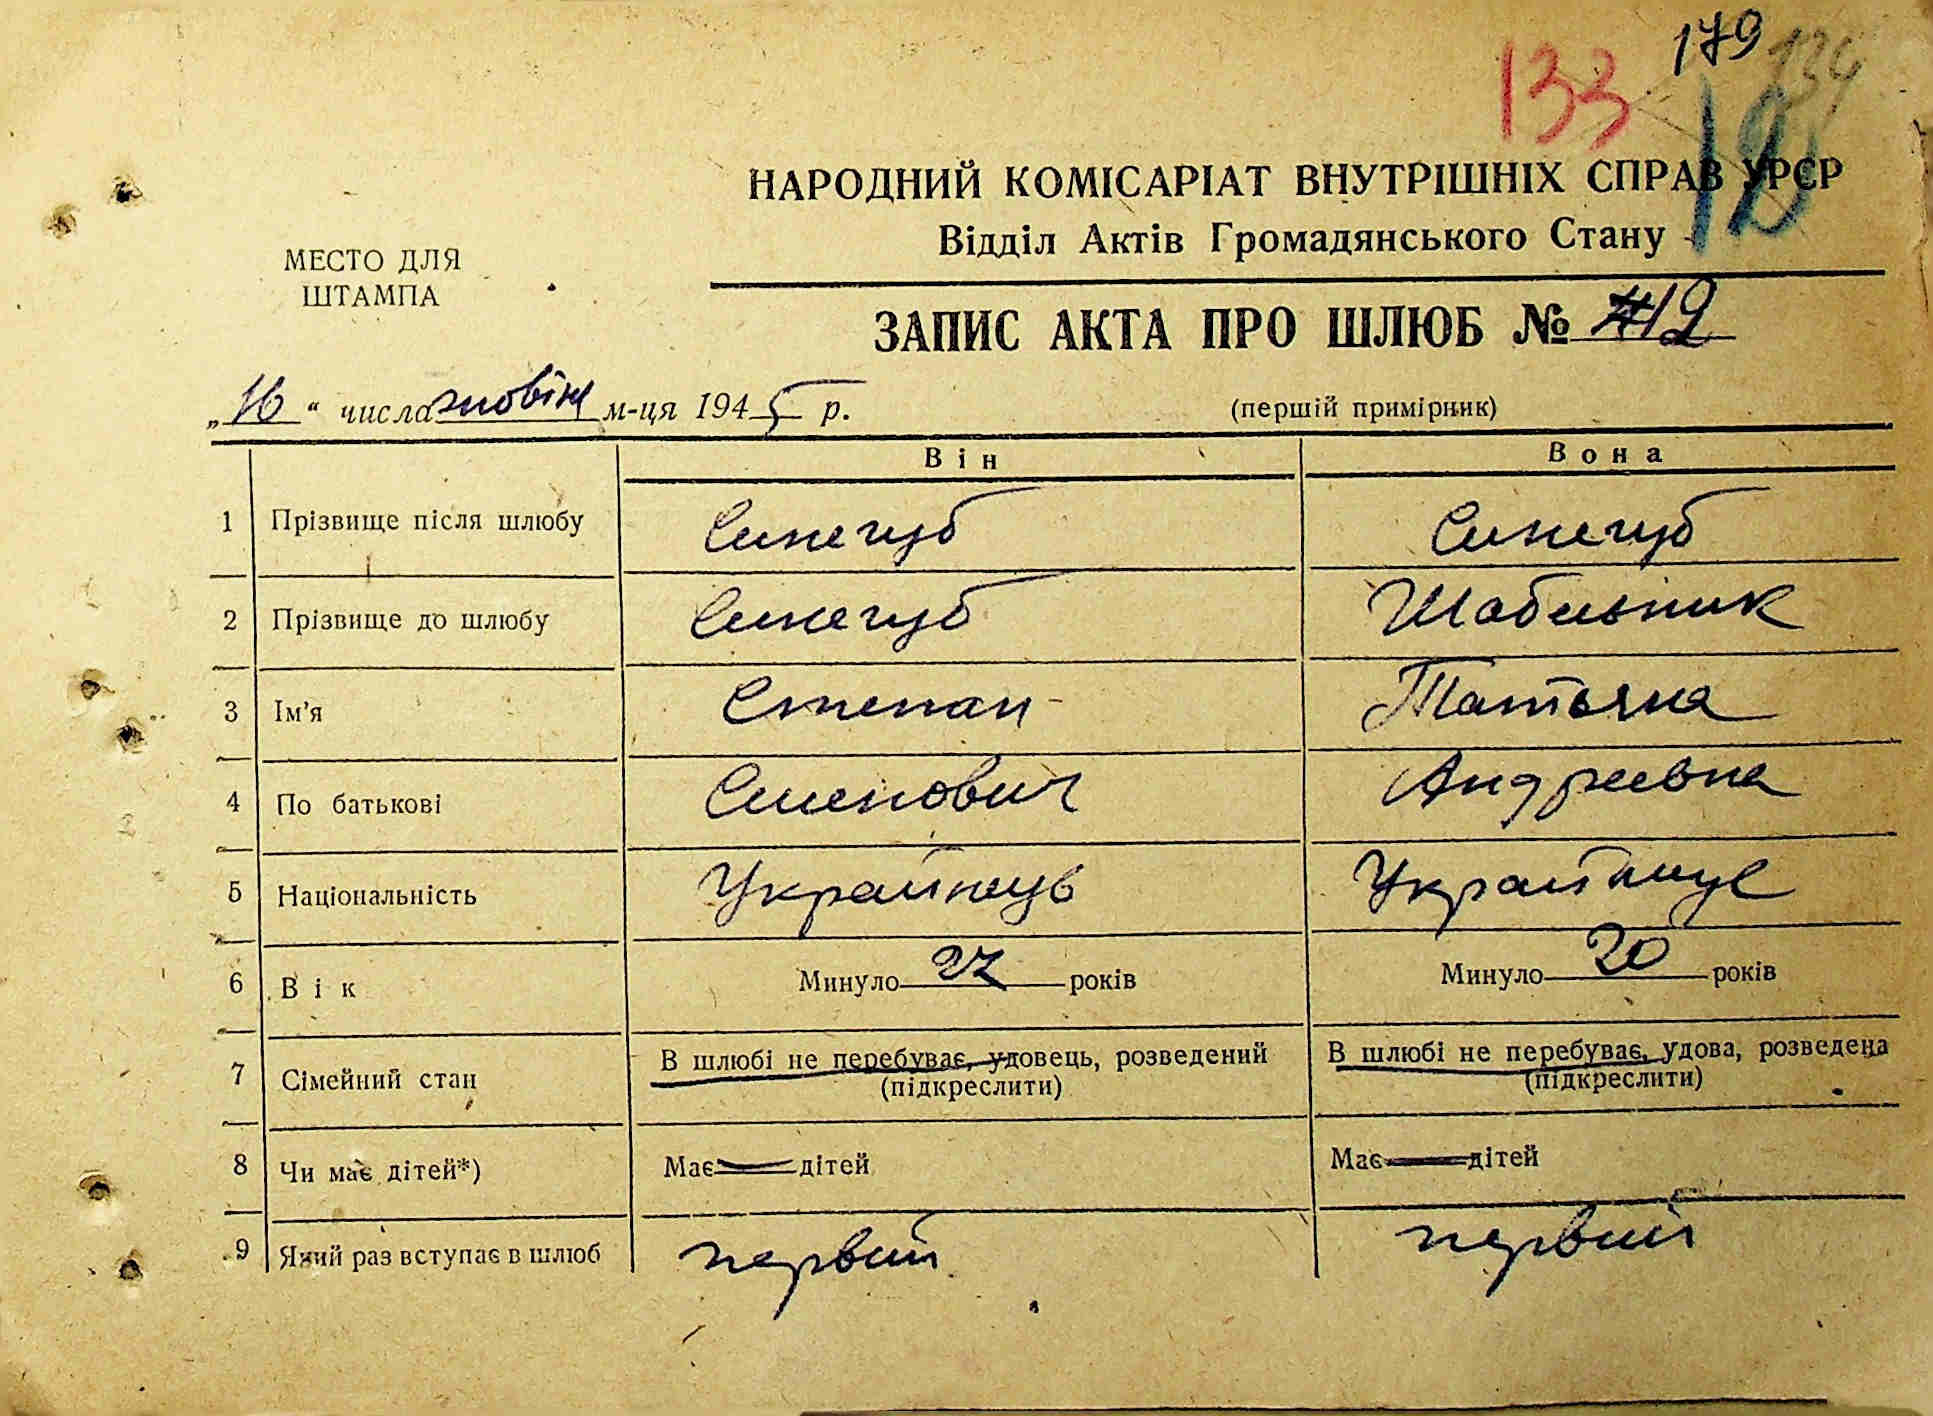 133 179 134
12
НАРОДНИЙ КОМІСАРІАТ ВНУТРІШНІХ СПРАВ УРСР
Відділ Актів Громадянського Стану
МЕСТО ДЛЯ
ШТАМПА
ЗАПИС АКТА ПРО ШЛЮБ № 12
„16“ числа жовтня м-ця 1945 р. (першій примірник)
Він Вона
1 Прізвище після шлюбу Синегуб Синегуб
2 Прізвище до шлюбу Синегуб Шабельник
3 Ім'я Степан Татьяна
4 По батькові Семенович Андреевна
5 Національність Українець
6 Вік Минуло 27 років Минуло 20 років
7 Сімейний стан В шлюбі не перебуває, удовець, розведений В шлюбі не перебуває, удова, розведена
(підкреслити) (підкреслити)
8 Чи має дітей*) Має — дітей Має — дітей
9 Який раз вступає в шлюб первий первий